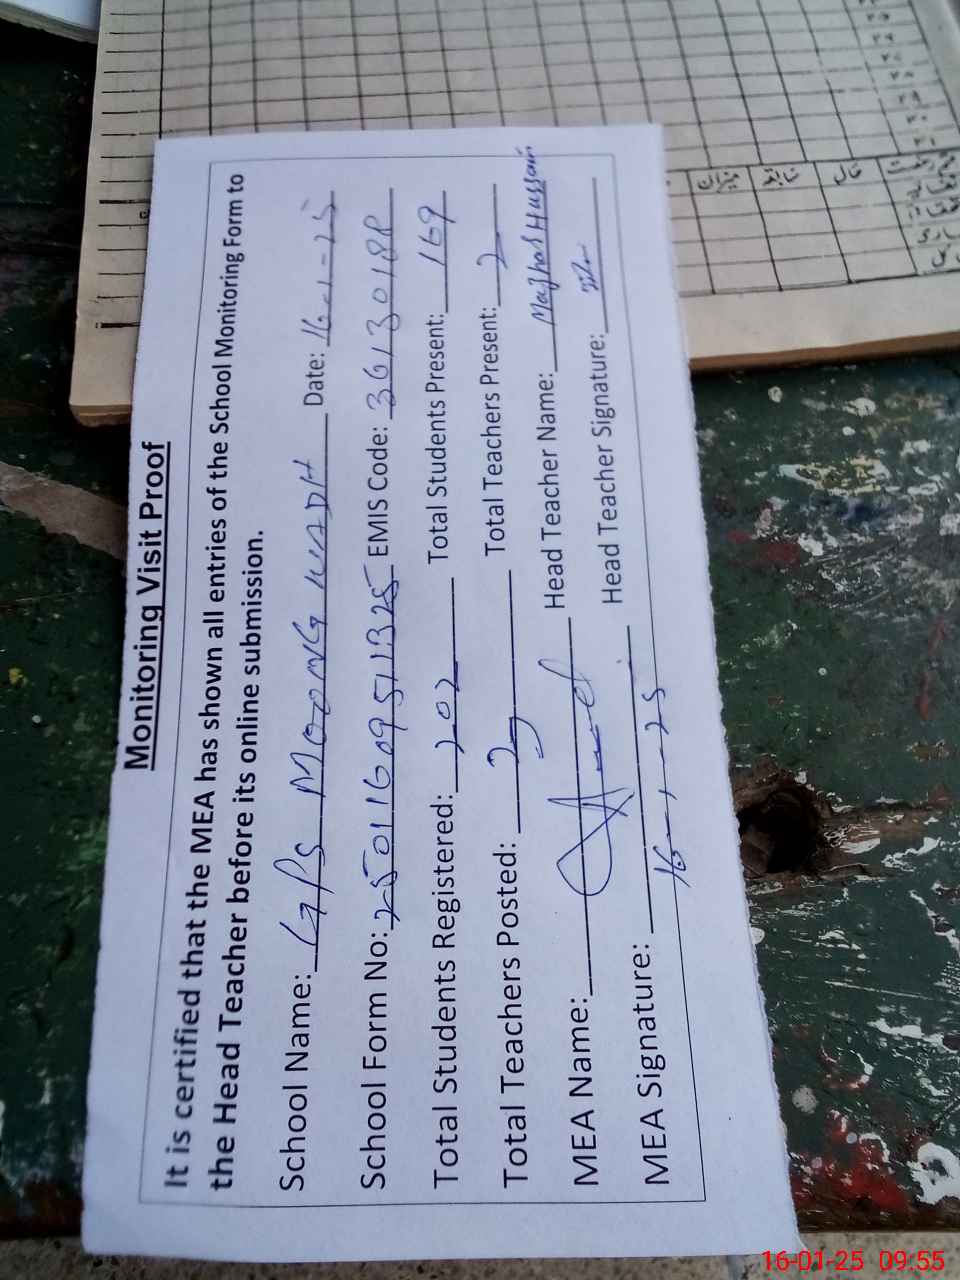 Monitoring Visit Proof
It is certified that the MEA has shown all entries of the School Monitoring Form to
the Head Teacher before its online submission.
School Name: GPS MOONG WADH Date: 16-1-25
School Form No: 25011609511325 EMIS Code: 36130188
Total Students Registered: 202 Total Students Present: 169
Total Teachers Posted: 2 Total Teachers Present: 2
MEA Name: Head Teacher Name: Mazhar Hussain
MEA Signature: 16-1-25 Head Teacher Signature:
میزان سابقہ حال
16-01-25 09:55